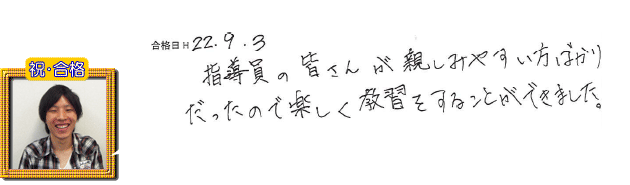 合格日 H 22.9.3
祝・合格
指導員の皆さんが親しみやすい方ばかり
だったので楽しく教習をすることができました。